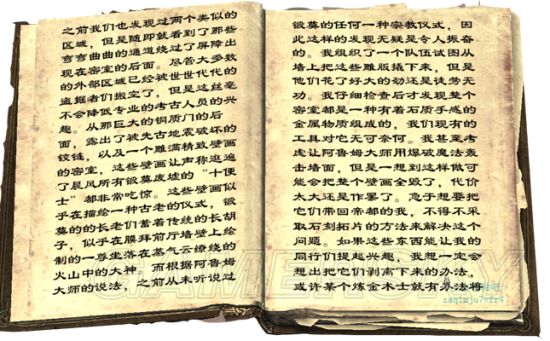 之前我们也发现过两个类似的
区域，但是随即就看到了那些
弯弯曲曲的通道绕过了屏障出
现在密室的后面。尽管大多数
的外部区域已经被世世代代的
盗掘者们搬空了，但是这丝毫
不会降低专业的考古人员的兴
趣。从那巨大的铜质门的后
面，露出了被先古地震破坏的
铰链，以及一个雕满精致壁画
的密室，这些壁画让声称逛遍
了晨风所有锻莫废墟的“十便
士”都非常吃惊。这些壁画似
乎在描绘一种古老的仪式，锻
莫的的长老们蓄着传统的长胡
子，似乎在膜拜前厅墙壁上绘
制的一尊坐落在蒸气云缭绕的
火山中的大神。而根据阿鲁姆
大师的说法，之前从未听说过
锻莫的任何一种宗教仪式，因
此这样的发现无疑是令人振奋
的。我组织了一个队伍试图从
墙上把这些雕版撬下来，但是
他们花了好大的劲还是徒劳无
功。我仔细检查后才发现整个
密室都是一种有着石质手感的
金属物质组成的，我们现有的
工具对它无可奈何。我甚至考
虑让阿鲁姆大师用爆破魔法轰
击墙面，但是一想到这样做可
能会把整个壁画全毁了，代价
太大还是作罢了。急于想要把
它们带回帝都的我，不得不采
取石刻拓片的方法来解决这个
问题。如果这些东西能让我的
同行们提起兴趣，我想一定会
想出把它们剥离下来的办法，
或许某个炼金术士就有办法将
GAMERSKY
zaq1mju7vfr4